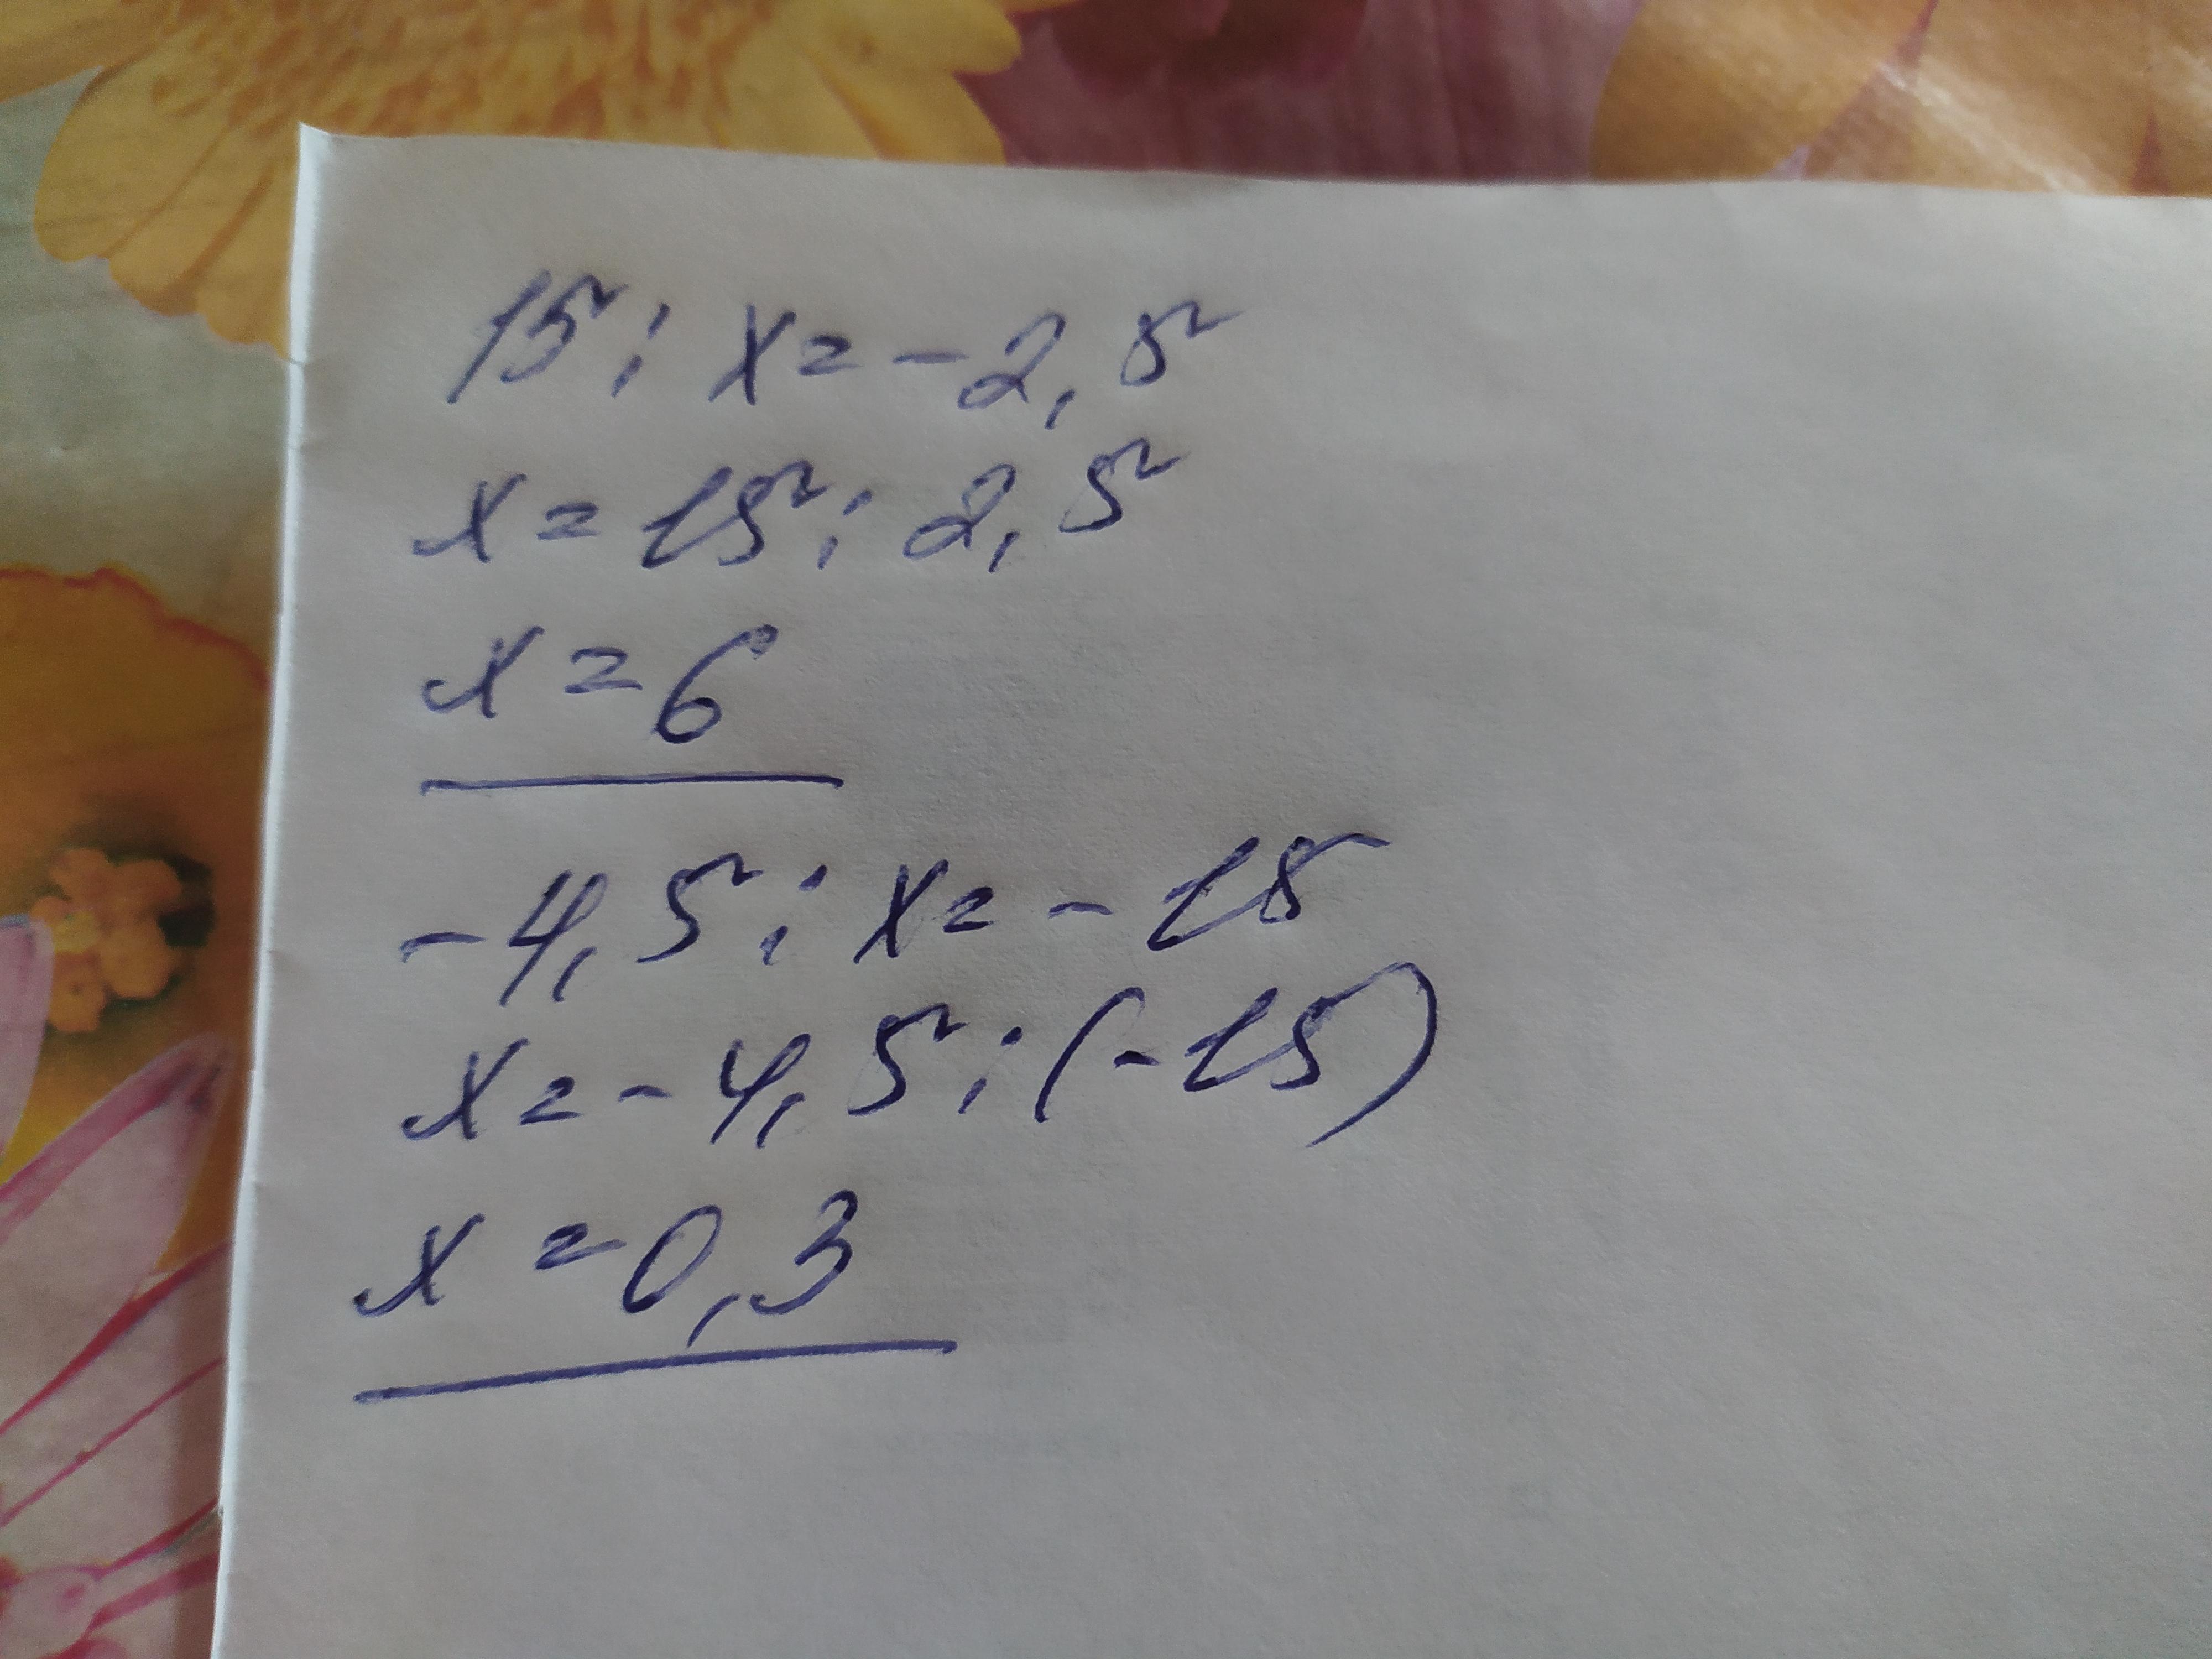 15 : x = -2,5
x = 15 : 2,5
x = 6
-4,5 : x = -15
x = -4,5 : (-15)
x = 0,3